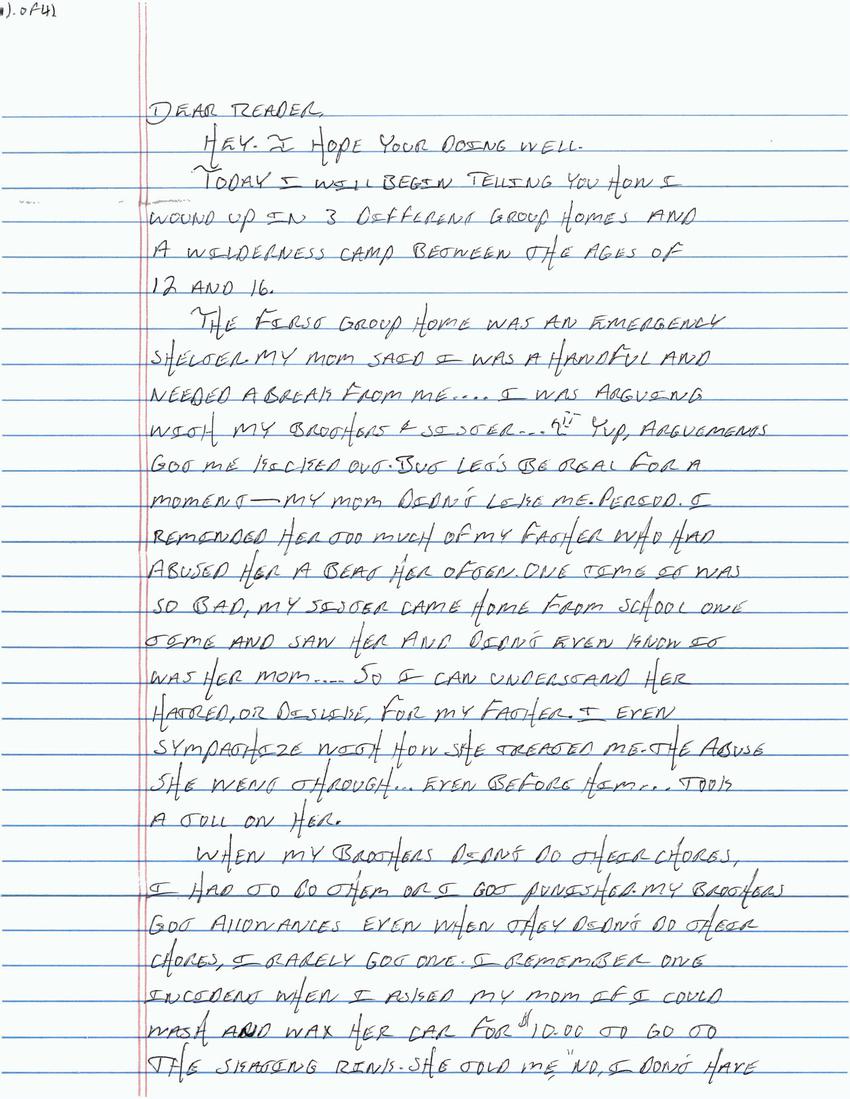 1). of 41
DEAR READER,
HEY. I HOPE YOUR DOING WELL.
TODAY I WILL BEGIN TELLING YOU HOW I
WOUND UP IN 3 DIFFERENT GROUP HOMES AND
A WILDERNESS CAMP BETWEEN THE AGES OF
12 AND 16.
THE FIRST GROUP HOME WAS AN EMERGENCY
SHELTER. MY MOM SAID I WAS A HANDFUL AND
NEEDED A BREAK FROM ME.... I WAS ARGUING
WITH MY BROTHERS & SISTER... YUP, ARGUEMENTS
GOT ME KICKED OUT. BUT LET'S BE REAL FOR A
MOMENT — MY MOM DIDN'T LIKE ME. PERIOD. I
REMINDED HER TOO MUCH OF MY FATHER WHO HAD
ABUSED HER A BEAT HER OFTEN. ONE TIME IT WAS
SO BAD, MY SISTER CAME HOME FROM SCHOOL ONE
TIME AND SAW HER AND DIDN'T EVEN KNOW IT
WAS HER MOM.... SO I CAN UNDERSTAND HER
HATRED, OR DISLIKE, FOR MY FATHER. I EVEN
SYMPATHIZE WITH HOW SHE TREATED ME. THE ABUSE
SHE WENT THROUGH... EVEN BEFORE HIM... TOOK
A TOLL ON HER.
WHEN MY BROTHERS DIDN'T DO THEIR CHORES,
I HAD TO DO THEM OR I GOT PUNISHED. MY BROTHERS
GOT ALLOWANCES EVEN WHEN THEY DIDN'T DO THEIR
CHORES, I RARELY GOT ONE. I REMEMBER ONE
INCIDENT WHEN I ASKED MY MOM IF I COULD
WASH AND WAX HER CAR FOR $10.00 TO GO TO
THE SKATING RINK. SHE TOLD ME, "NO, I DON'T HAVE